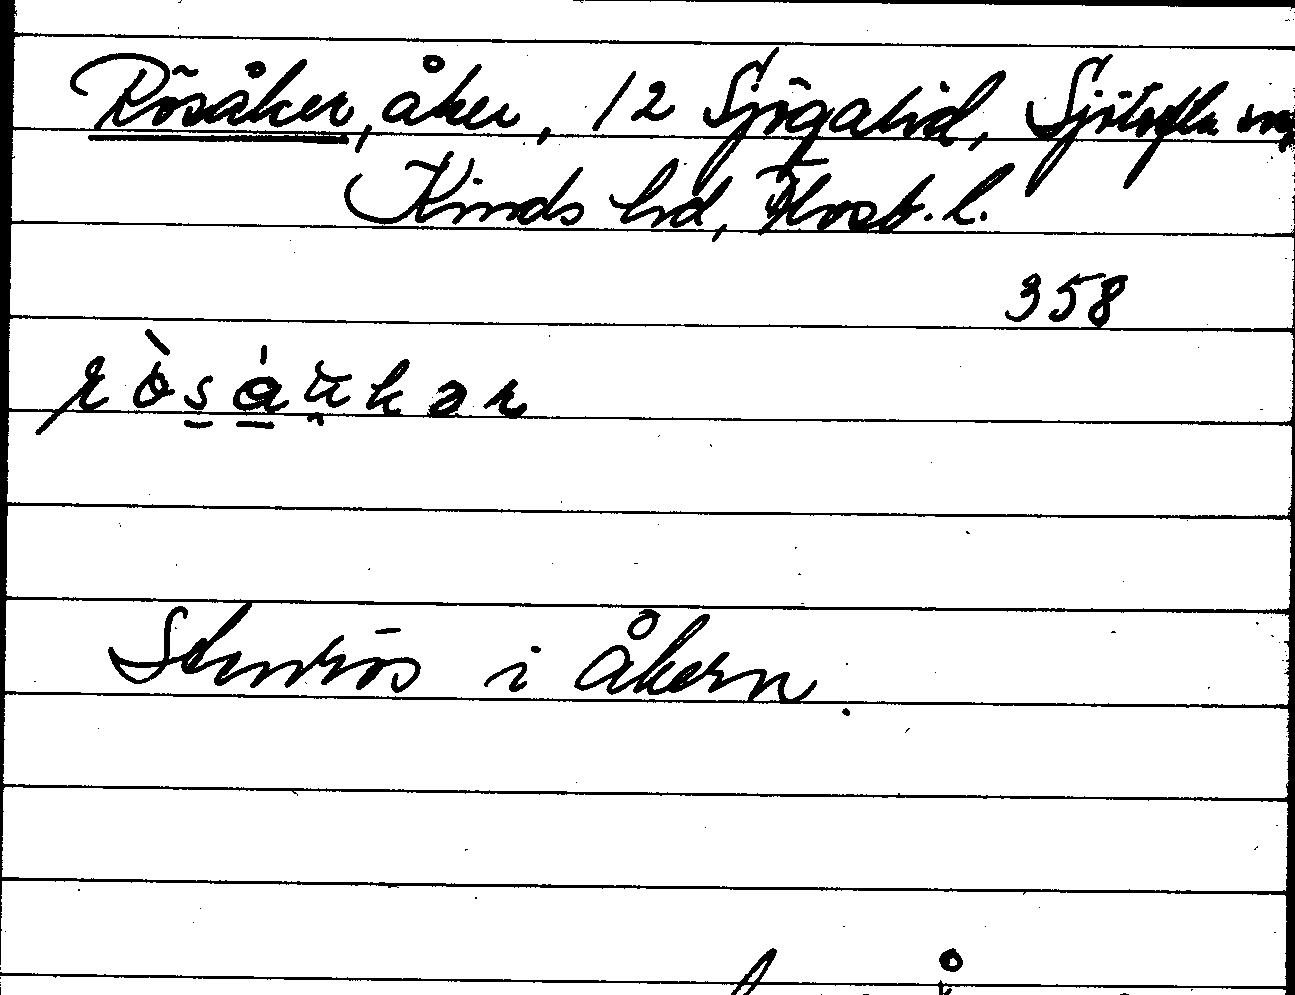 Rösåker, åker, 12 Sjögalid, Sjötofta
Kinds hd, Älvsb. l.
358
Stenrös i åkern.